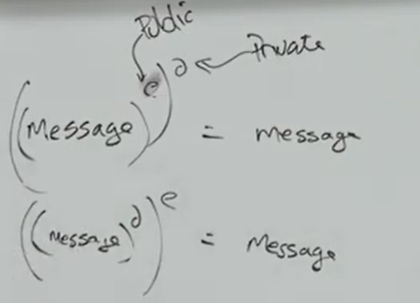 Public
Private
((Message)^e)^d = message
((Message)^d)^e = Message